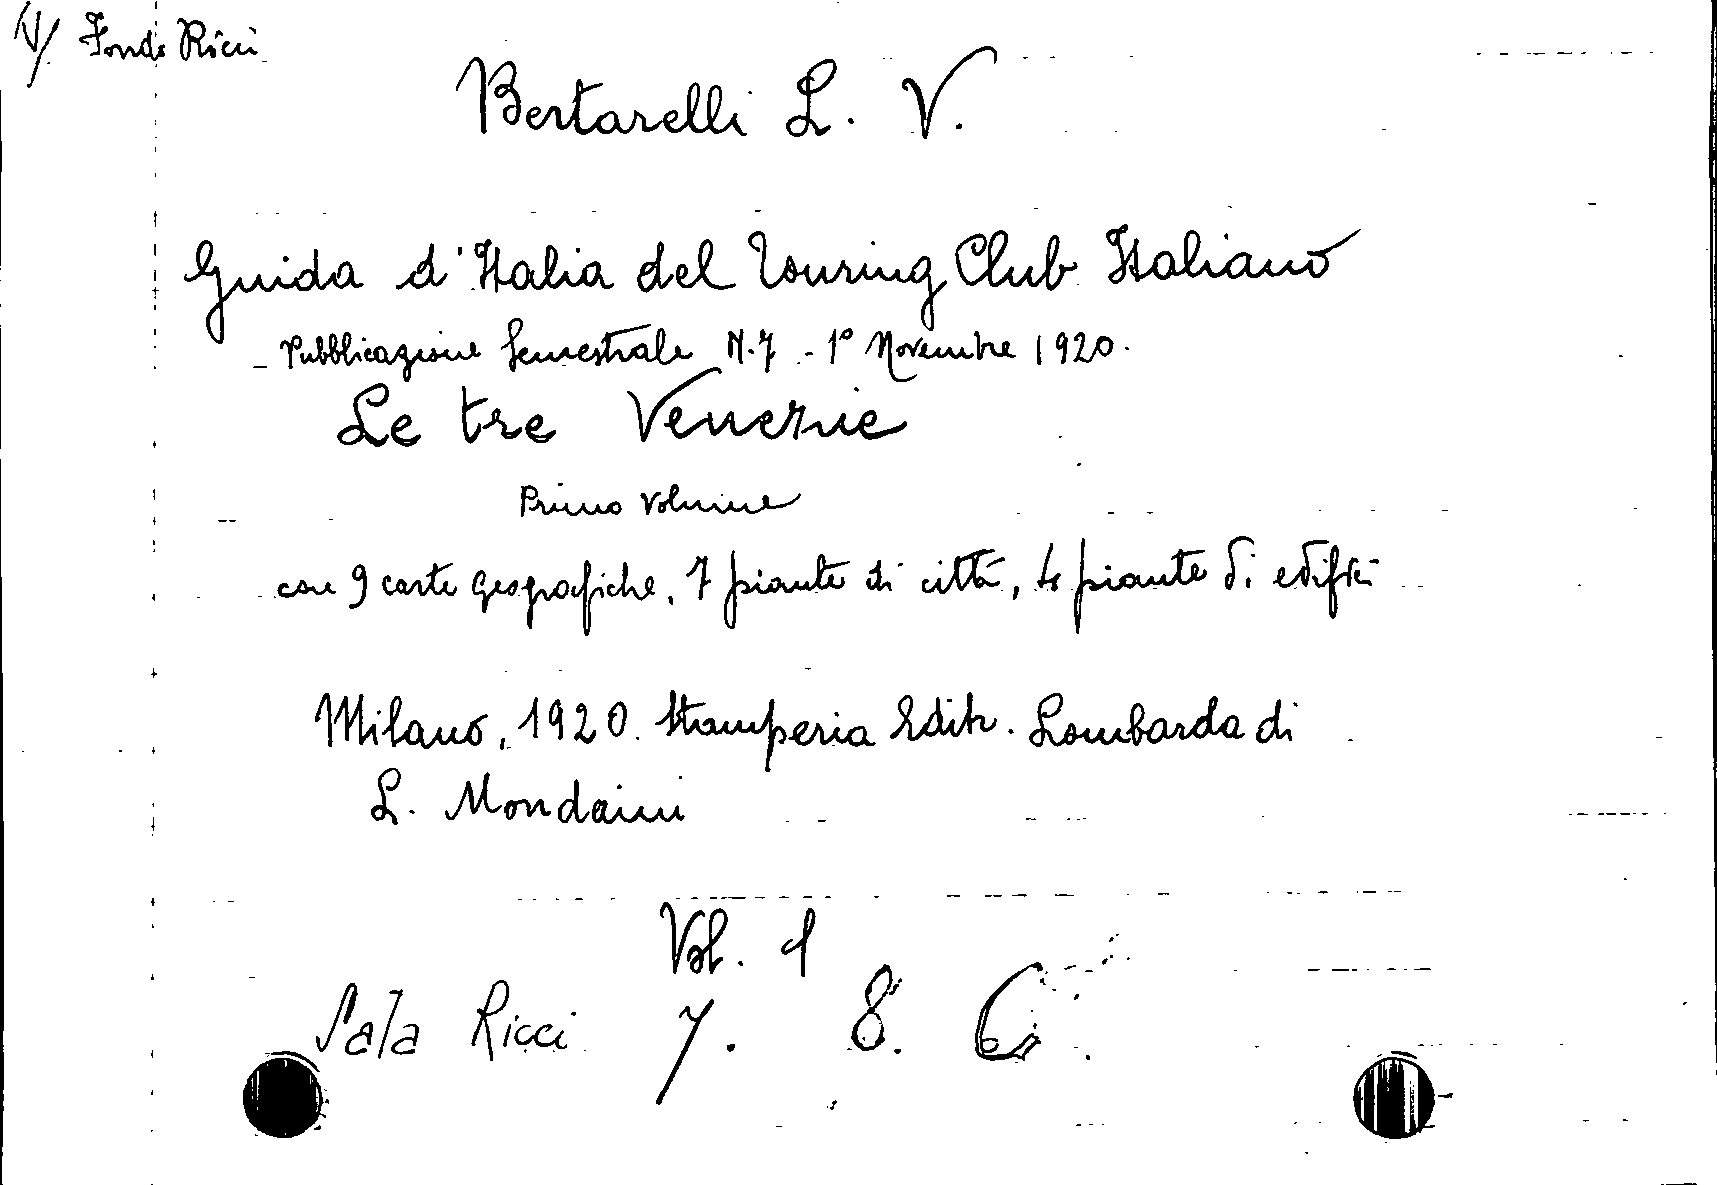 Fondo Ricci
Bertarelli L. V.
Guida d'Italia del Touring Club Italiano
Pubblicazione Semestrale N. 7 - 1° Novembre 1920.
Le tre Venezie
Primo Volume
con 9 carte geografiche, 7 piante di città, 4 piante di edifici
Milano, 1920. Stamperia Editr. Lombarda di
L. Mondaini
Vol. 1
Sala Ricci 7. 8. 6.